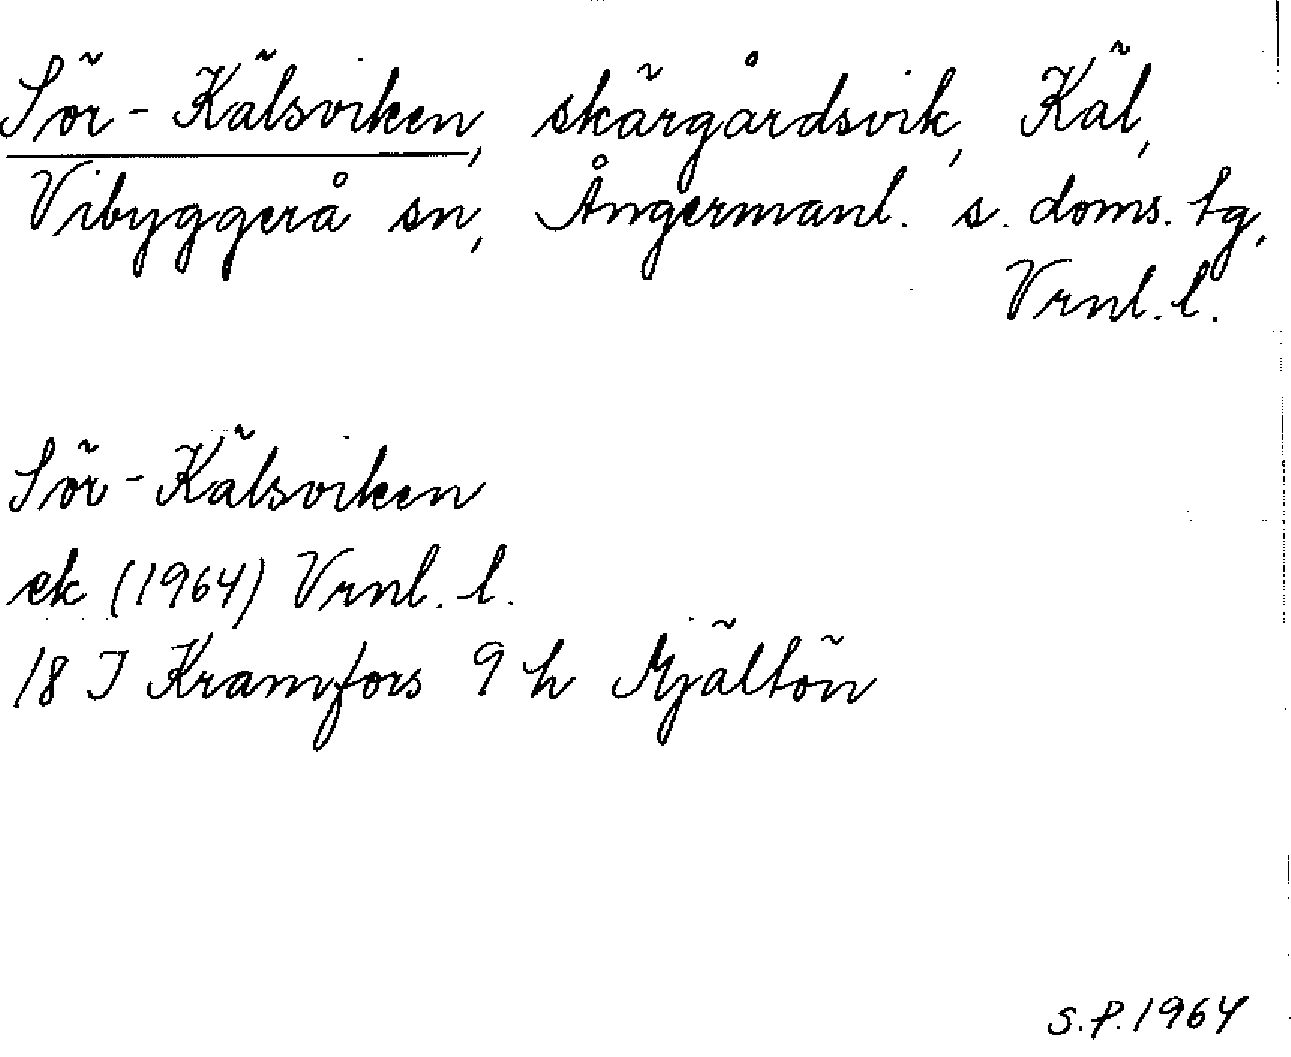 Sör-Kälsviken, skärgårdsvik, Käl,
Vibyggerå sn, Ångermanl. s. doms. tg,
Vrnl. l.
Sör-Kälsviken
ek (1964) Vrnl. l.
18 I Kramfors 9 h Mjältön
S.P. 1964